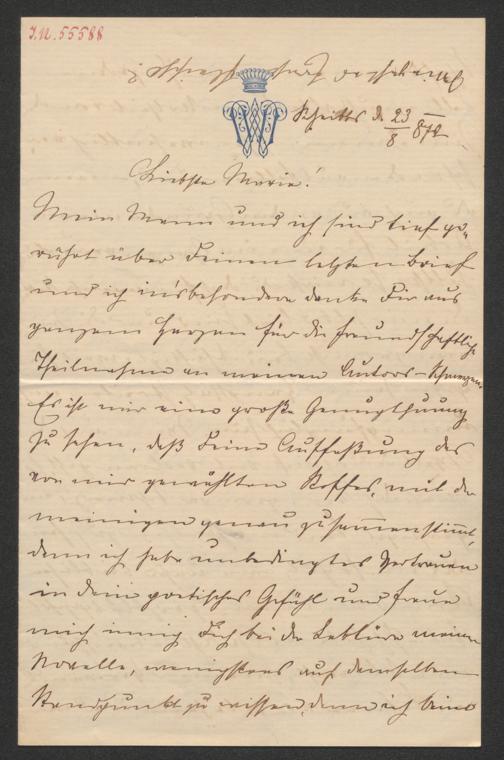 J.N. 55588
Schritts d. 23/8 872
Liebste Marie!
Mein Mann und ich sind tief ge-
rührt über Deinen letzten Brief
und ich in'sbesondere danke Dir aus
ganzem Herzen für die freundschaftliche
Theilnahme an meinen Autors-Schmerzen.
Es ist mir eine große Genugthuung
zu sehen, daß Deine Auffaßung des
von mir gewählten Stoffes, mit der
meinigen genau zusammenstimmt,
denn ich habe unbedingtes Vertrauen
in dein poetisches Gefühl und freue
mich innig Dich bei der Lektüre meiner
Novelle, wenigstens auf demselben
Standpunkt zu wissen, denn ich beim